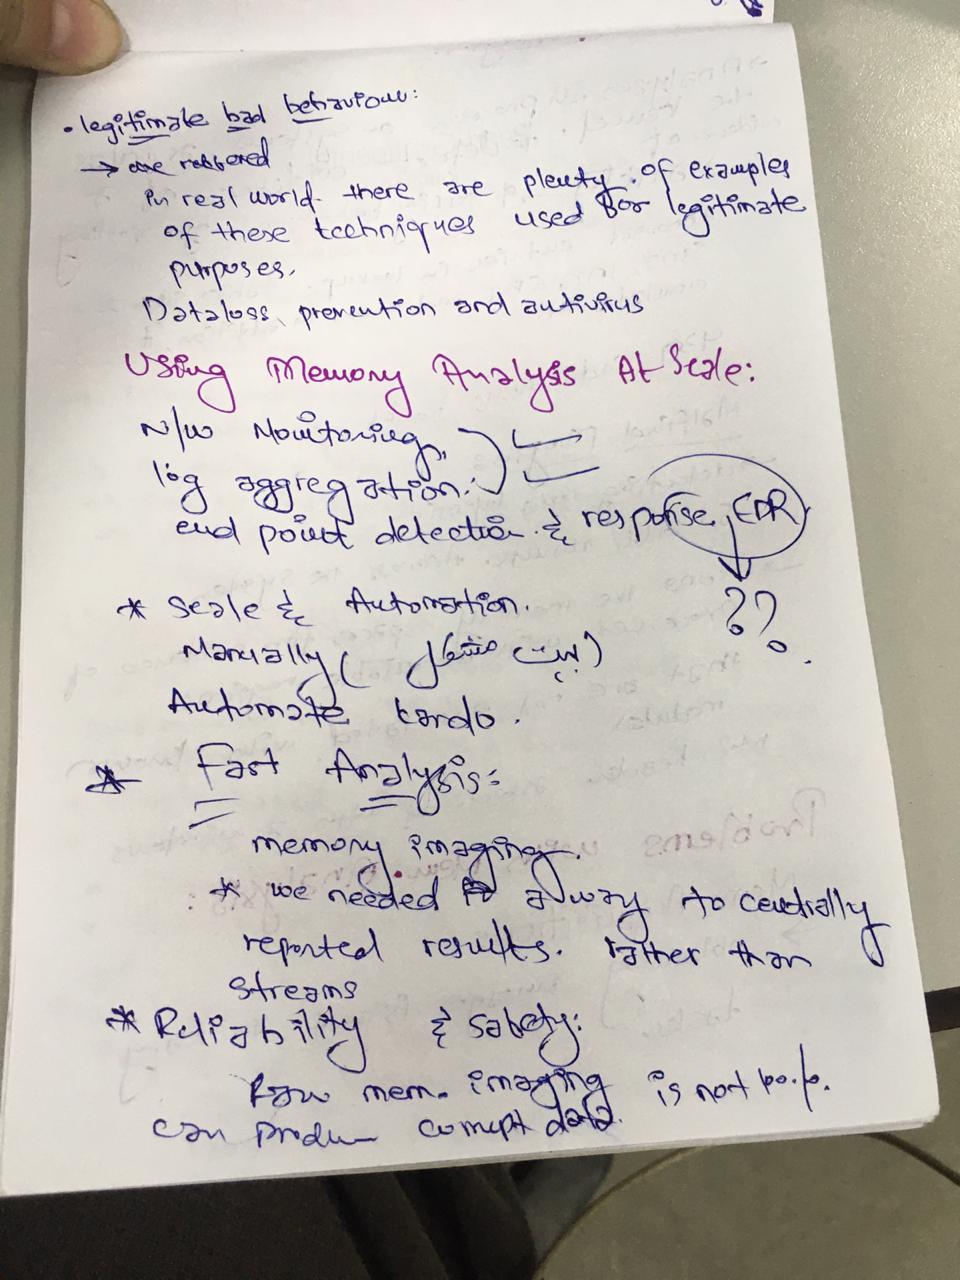 • legitimate bad behaviour:
→ are
In real world there are plenty of examples
of these techniques used for legitimate
purposes.
Dataloss prevention and antivirus
Using Memory Analysis At Scale:
N/w Monitoring,
log aggregation.
end point detection & response, EDR
??
* Scale & Automation.
Manually (بہت مشکل)
Automate kardo.
* Fast Analysis:
memory imaging.
* we needed a way to centrally
reported results. rather than
streams
* Reliability & Safety:
Raw mem. imaging is not
can produce corrupt data.